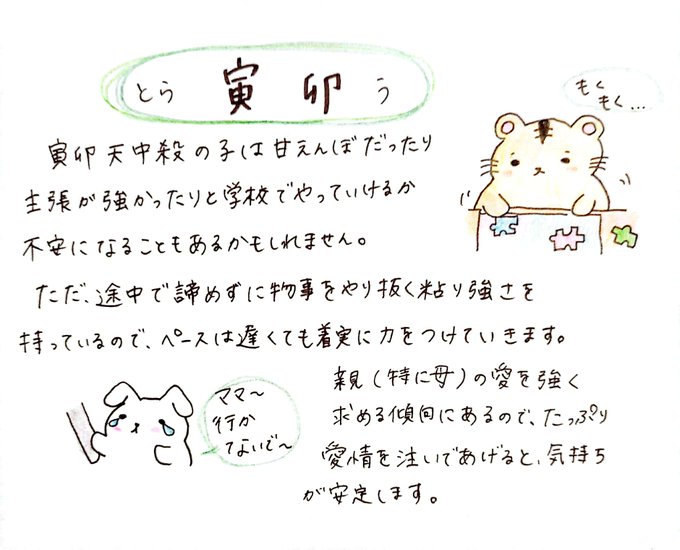 とら 寅 卯 う
もく
もく…
寅卯天中殺の子は甘えんぼだったり
主張が強かったりと学校でやっていけるか
不安になることもあるかもしれません。
ただ、途中で諦めずに物事をやり抜く粘り強さを
持っているので、ペースは遅くても着実に力をつけていきます。
親(特に母)の愛を強く
求める傾向にあるので、たっぷり
愛情を注いであげると、気持ち
が安定します。
ママ〜
行か
てないで〜